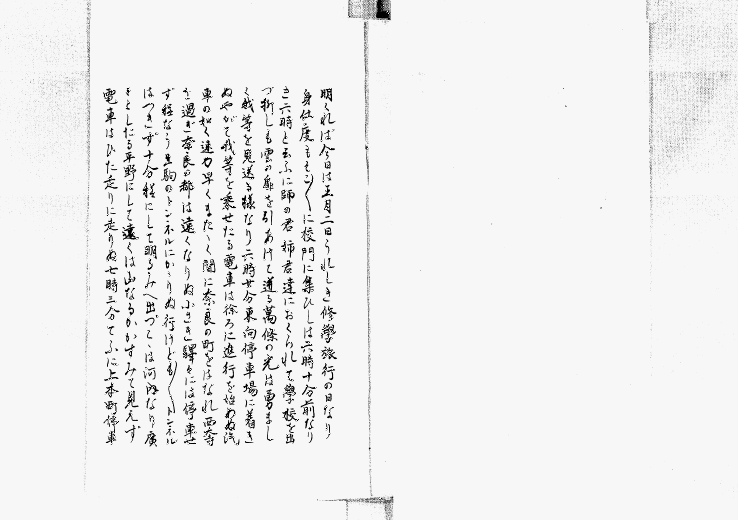 明くれば今日は五月二日うれしき修學旅行の日なり
身仕度もそこ〳〵に校門に集ひしは六時十分前なり
き六時と云ふに師の君姉君達におくられて學校を出
づ折しも雲の扉を引あけて道る萬條の光は勇まし
く我等を見送る様なり六時廿分東向停車場に着き
ぬやがて我等を乗せたる電車は徐ろに進行を始めぬ汽
車の如く速力早くまたゝく間に奈良の町をはなれ西大寺
を過ぎ奈良の都は遠くなりぬ小さき驛々には停車せ
ず程なう生駒のトンネルにかゝりぬ行けども〳〵トンネル
はつきず十分程にして明るみへ出づこゝは河内なり廣
々としたる平野にして遠くは山なるかかすみて見えず
電車はひた走りに走りぬ七時三分てふに上本町停車